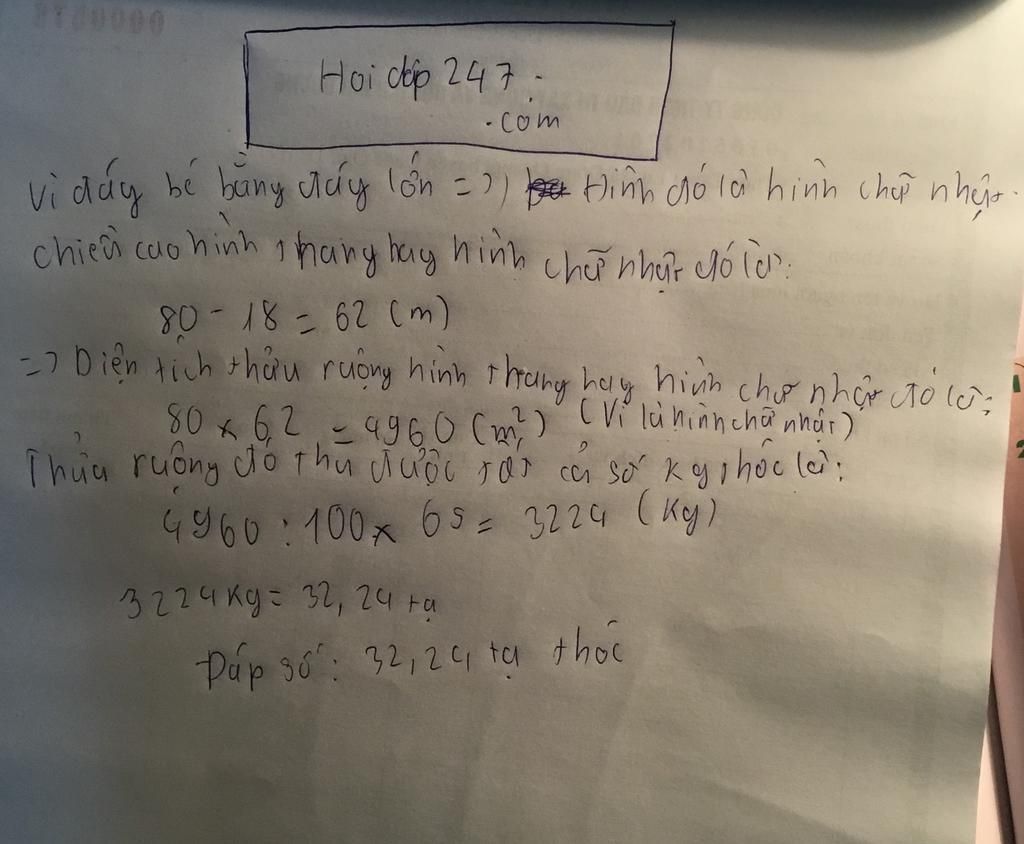 Hoi đáp 247.
.com
Vì đáy bé bằng đáy lớn => Hình đó là hình chữ nhật.
chiều cao hình thang hay hình chữ nhật đó là:
80 - 18 = 62 (m)
=> Diện tích thửa ruộng hình thang hay hình chữ nhật đó là:
80 x 62 = 4960 (m²) (Vì là hình chữ nhật)
Thửa ruộng đó thu được tất cả số kg thóc là:
4960 : 100 x 65 = 3224 (kg)
3224 kg = 32,24 tạ
Đáp số: 32,24 tạ thóc